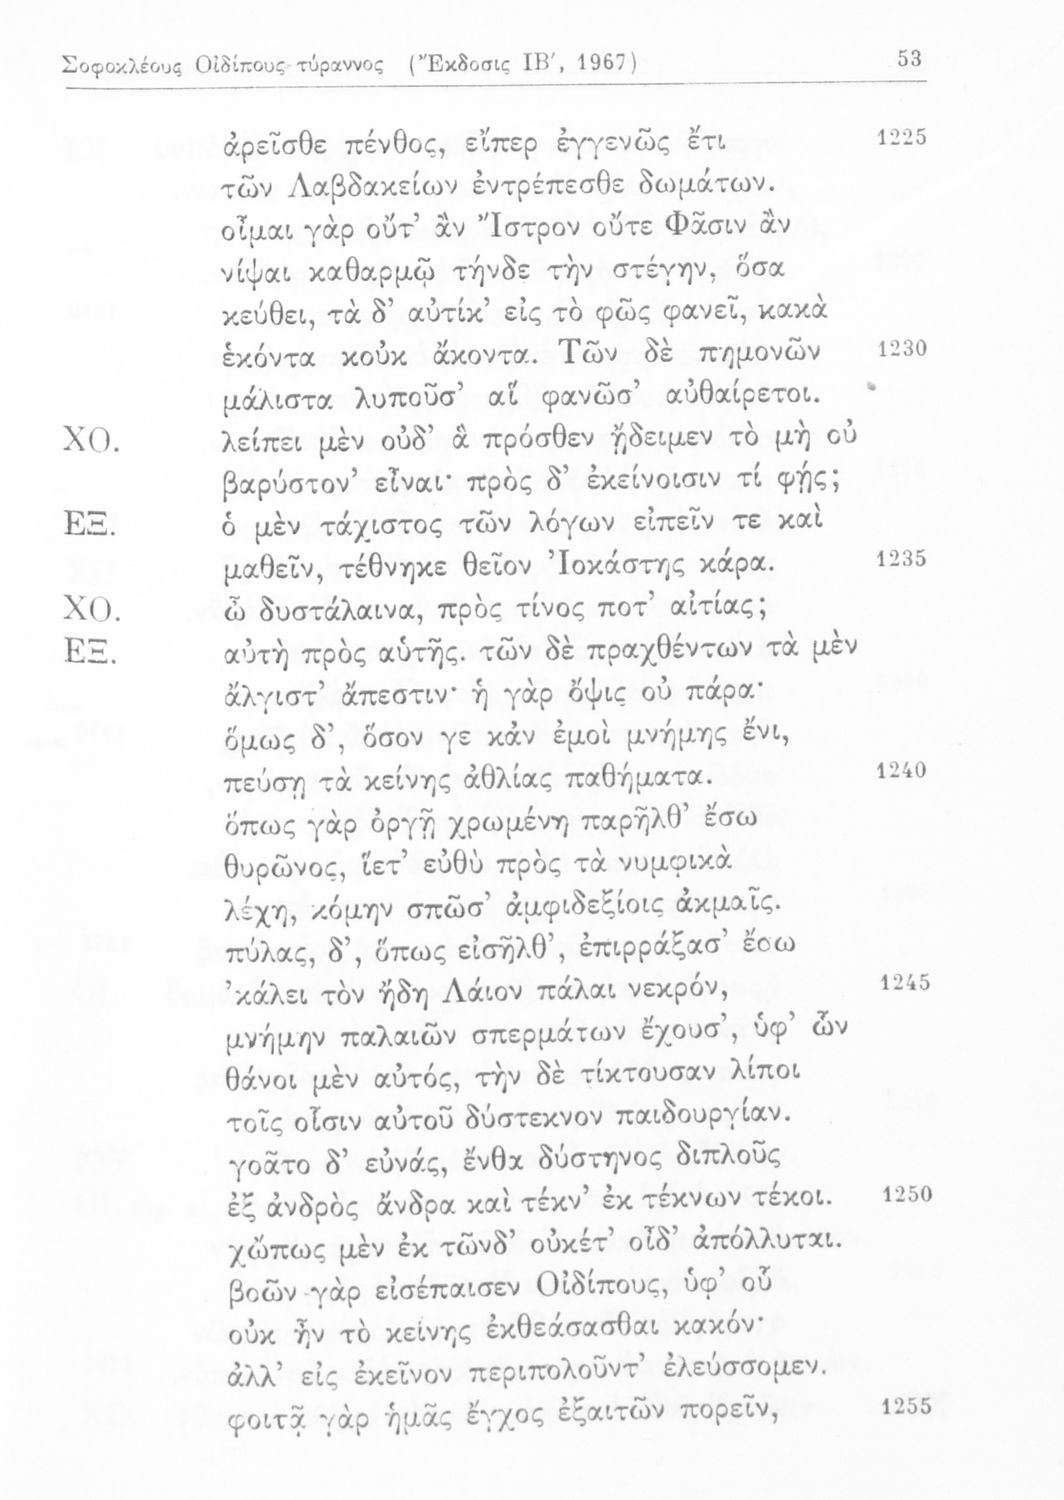 Σοφοκλέους Οἰδίπους τύραννος (Ἔκδοσις ΙΒ′, 1967) 53
ἀρεῖσθε πένθος, εἴπερ ἐγγενῶς ἔτι 1225
τῶν Λαβδακείων ἐντρέπεσθε δωμάτων.
οἶμαι γὰρ οὔτ’ ἂν Ἴστρον οὔτε Φᾶσιν ἂν
νίψαι καθαρμῷ τήνδε τὴν στέγην, ὅσα
κεύθει, τὰ δ’ αὐτίκ’ εἰς τὸ φῶς φανεῖ, κακὰ
ἑκόντα κοὐκ ἄκοντα. Τῶν δὲ πημονῶν 1230
μάλιστα λυποῦσ’ αἳ φανῶσ’ αὐθαίρετοι.
ΧΟ. λείπει μὲν οὐδ’ ἃ πρόσθεν ᾔδειμεν τὸ μὴ οὐ
βαρύστον’ εἶναι· πρὸς δ’ ἐκείνοισιν τί φῄς;
ΕΞ. ὁ μὲν τάχιστος τῶν λόγων εἰπεῖν τε καὶ
μαθεῖν, τέθνηκε θεῖον Ἰοκάστης κάρα. 1235
ΧΟ. ὦ δυστάλαινα, πρὸς τίνος ποτ’ αἰτίας;
ΕΞ. αὐτὴ πρὸς αὑτῆς. τῶν δὲ πραχθέντων τὰ μὲν
ἄλγιστ’ ἄπεστιν· ἡ γὰρ ὄψις οὐ πάρα·
ὅμως δ’, ὅσον γε κἀν ἐμοὶ μνήμης ἔνι,
πεύσῃ τὰ κείνης ἀθλίας παθήματα. 1240
ὅπως γὰρ ὀργῇ χρωμένη παρῆλθ’ ἔσω
θυρῶνος, ἵετ’ εὐθὺ πρὸς τὰ νυμφικὰ
λέχη, κόμην σπῶσ’ ἀμφιδεξίοις ἀκμαῖς.
πύλας, δ’, ὅπως εἰσῆλθ’, ἐπιρράξασ’ ἔσω
’κάλει τὸν ἤδη Λάιον πάλαι νεκρόν, 1245
μνήμην παλαιῶν σπερμάτων ἔχουσ’, ὑφ’ ὧν
θάνοι μὲν αὐτός, τὴν δὲ τίκτουσαν λίποι
τοῖς οἷσιν αὐτοῦ δύστεκνον παιδουργίαν.
γοᾶτο δ’ εὐνάς, ἔνθα δύστηνος διπλοῦς
ἐξ ἀνδρὸς ἄνδρα καὶ τέκν’ ἐκ τέκνων τέκοι. 1250
χὤπως μὲν ἐκ τῶνδ’ οὐκέτ’ οἶδ’ ἀπόλλυται.
βοῶν γὰρ εἰσέπαισεν Οἰδίπους, ὑφ’ οὗ
οὐκ ἦν τὸ κείνης ἐκθεάσασθαι κακόν·
ἀλλ’ εἰς ἐκεῖνον περιπολοῦντ’ ἐλεύσσομεν.
φοιτᾷ γὰρ ἡμᾶς ἔγχος ἐξαιτῶν πορεῖν, 1255